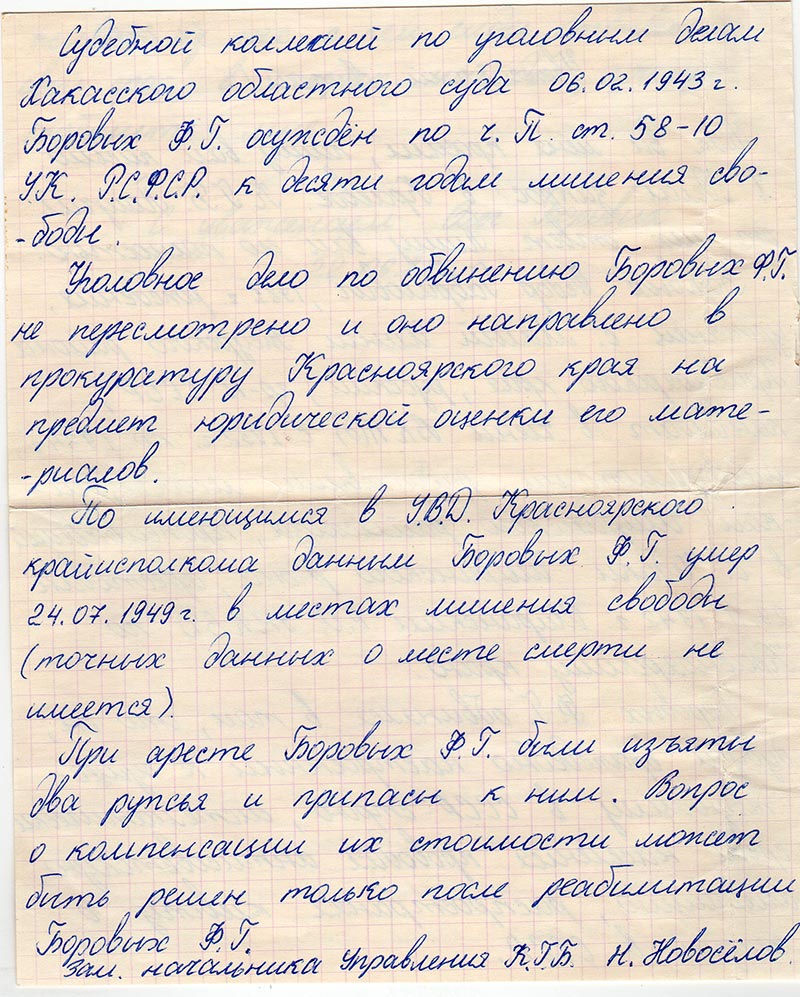 Судебной коллекией по уголовным делам
Хакасского областного суда 06.02.1943 г.
Боровых Ф.Г. осуждён по ч.П. ст. 58-10
УК. Р.С.Ф.С.Р. к десяти годам лишения сво-
-боды.
Уголовное дело по обвинению Боровых Ф.Г.
не пересмотрено и оно направлено в
прокуратуру Красноярского края на
предмет юридической оценки его мате-
-риалов.
По имеющимся в У.В.Д. Красноярского
крайисполкома данным Боровых Ф.Г. умер
24.07.1949г. в местах лишения свободы
(точных данных о месте смерти не
имеется).
При аресте Боровых Ф.Г. были изъяты
два ружья и припасы к ним. Вопрос
о компенсации их стоимости может
быть решен только после реабилитации
Боровых Ф.Г.
Зам. начальника Управления К.Г.Б. Н. Новосёлов.